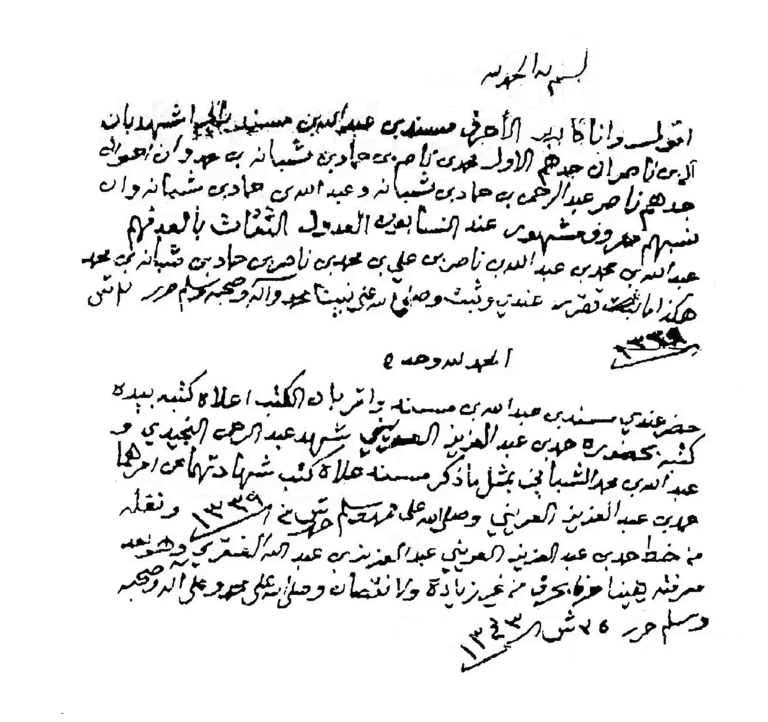 بسم الله الحمد لله
اقول وانا كاتب الأحرف مسند بن عبدالله بن مسند اشهد بان
آل بن ناصر ان جدهم الاول محمد بن ناصر بن حماد بن شبانه بن محمد وان اخوال
جدهم ناصر عبدالرحمن بن حماد بن شبانه وعبدالله بن حماد بن شبانه وان
نسبهم معروف مشهور عند النسابون العدول الثقات بالعدفهم
عبدالله بن محمد بن عبدالله بن ناصر بن علي بن محمد بن ناصر بن حماد بن شبانه بن محمد
هكذا ما تقرر عندي وثبت وصلى الله على نبينا محمد وآله وصحبه وسلم حرر ش
١٣٣٩
الحمد لله وحده
حضر عندي مسند بن عبدالله بن مسند واقر بان الكتب اعلاه كتبه بيده
كتبه بحضوره حمد بن عبدالعزيز العريني شهد عبدالرحمن النجيدي و
عبدالله بن محمد الشباني بمثل ما ذكر مسند علاه كتب شهادتهما عن امرهما
حمد بن عبدالعزيز العريني وصلى الله على محمد وسلم ١٣٣٩ ونقله
من خط حمد بن عبدالعزيز العريني عبدالعزيز بن عبدالله الفقري وهو بعد
معرفته يقينا حرفا بحرف من غير زيادة ولا نقصان وصلى الله على محمد وعلى آله وصحبه
وسلم حرر ٢٥ ش ١٣٤٣